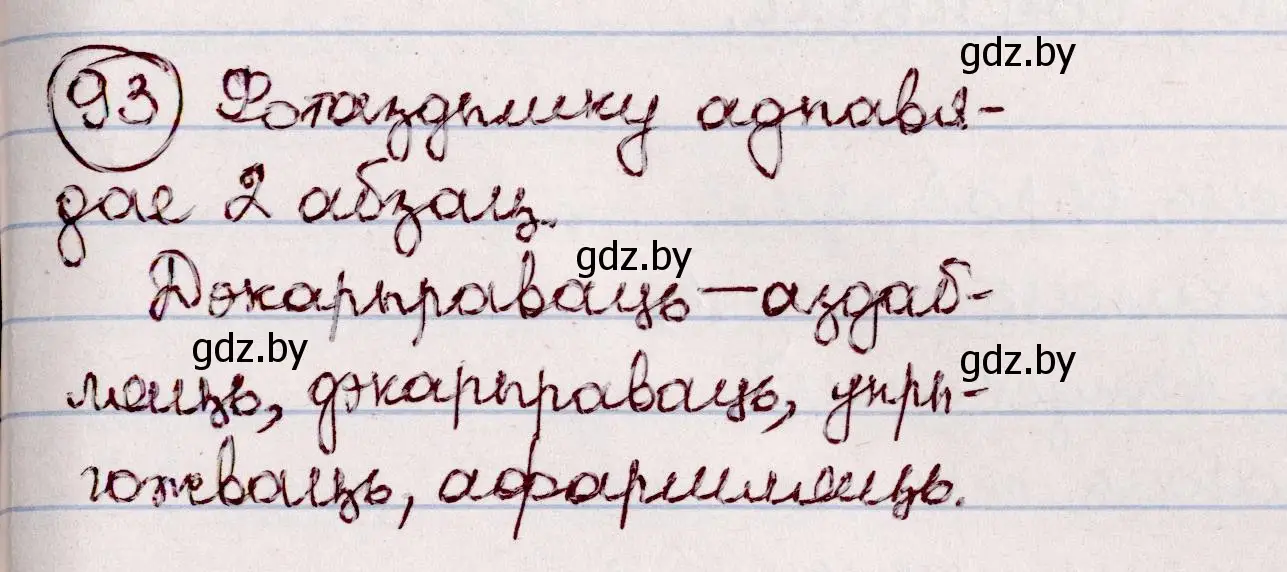 gdz.by
93 Фотаздымку адпавя-
дае 2 абзац.
gdz.by
Дэкарыраваць — аздаб-
gdz.by
gdz.by
ляць, дэкарыраваць, упры-
гожваць, афармляць.